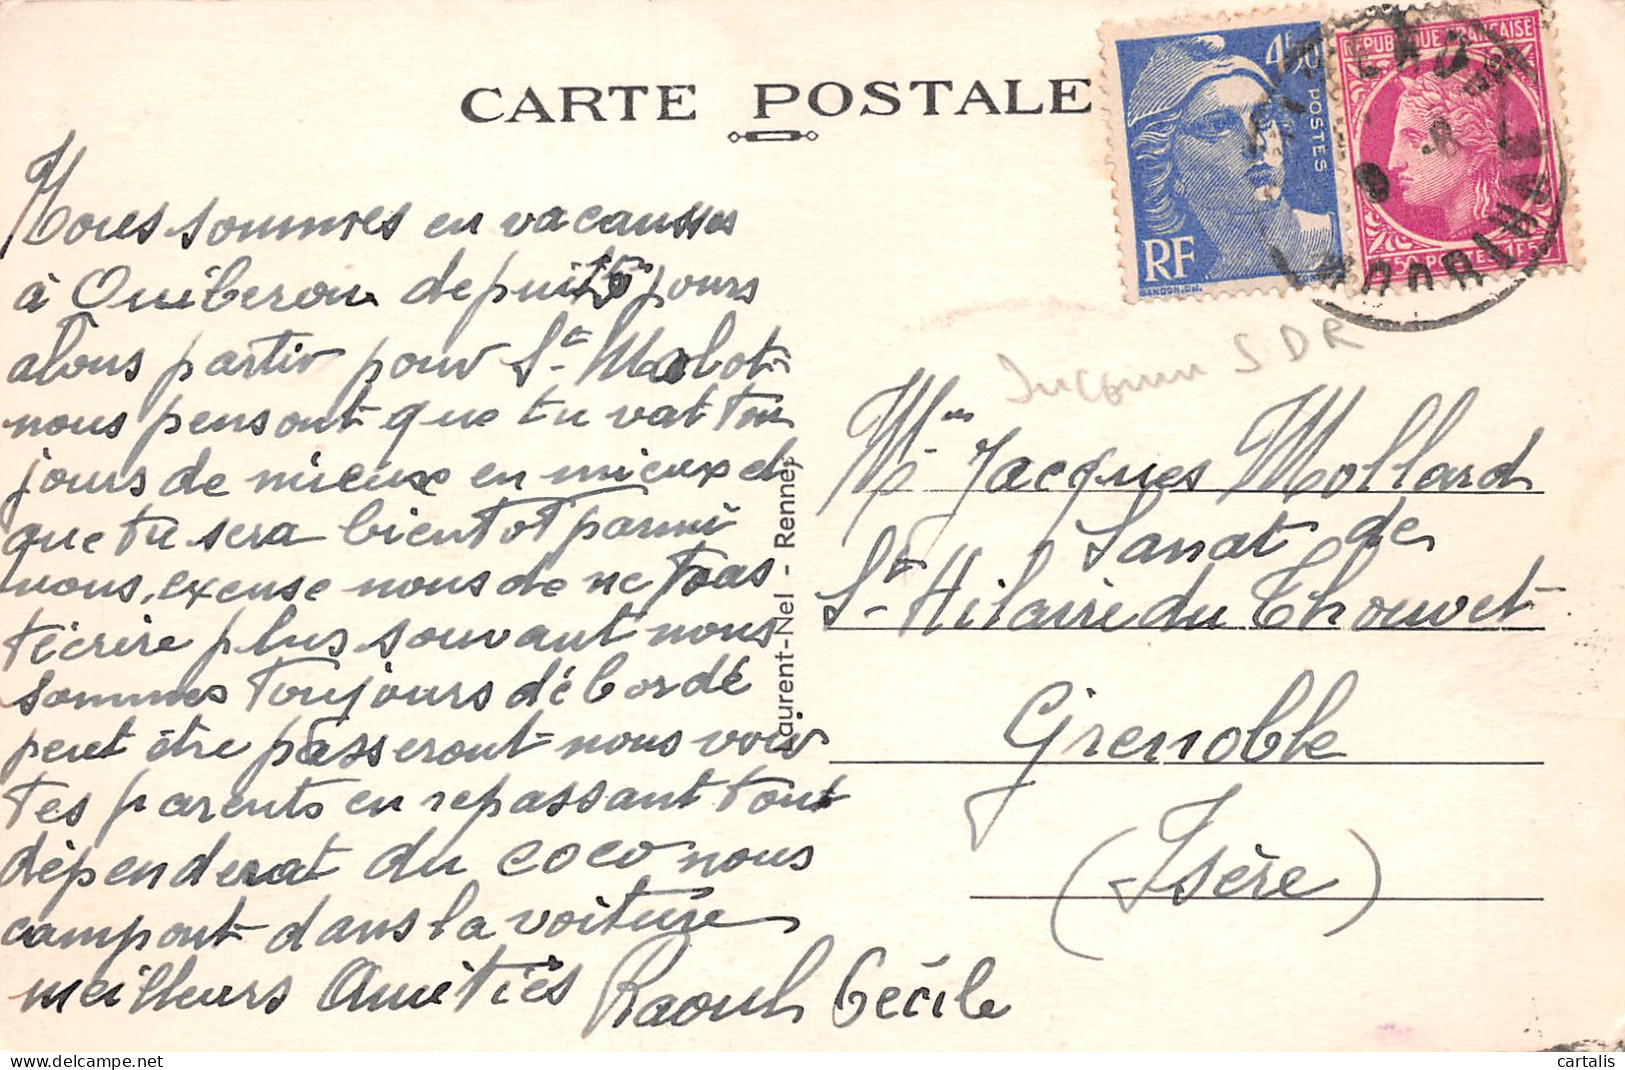 CARTE POSTALE
4F50
POSTES
RF
RÉPUBLIQUE FRANÇAISE
1F50 POSTES 1F50
MORBIHAN
Nous sommes en vacansses
à Quiberon depuis 15 jours
alons partir pour St Malo et
nous pensont que tu vat tou
jours de mieux en mieux et
que tu sera bientot parmi
nous, excuse nous de ne pas
t'écrire plus souvant nous
sommes toujours débordé
peut être passeront-nous voir
tes parents en repassant tout
dépenderat du coco nous
campont dans la voiture
meilleurs Amitiés Raoul Cécile
Laurent-Nel - Rennes
SDR
Jacques Mollard
Sanat de
St Hilaire du Thouvet
Grenoble
(Isère)
cartalis